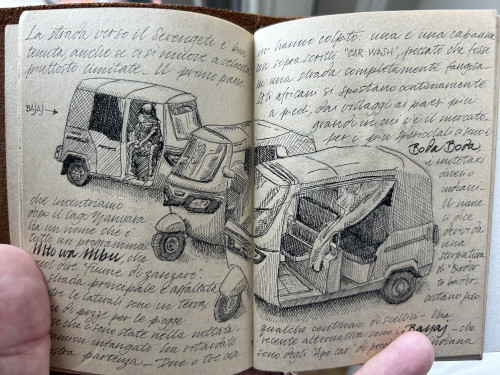 La strada verso il Serengeti è ben
tenuta, anche se ci si muove a velocità
piuttosto limitate. Il primo paese
BAJAJ
che incontriamo
dopo il lago Manyara
ha un nome che è
tutto un programma
Mto wa Mbu, che
vuol dire "fiume di zanzare".
strada principale è asfaltata
le laterali sono in terra,
di pozze per le piogge
che ci sono state nella nottata.
infangato ha ritardato
nostra partenza. Due o tre cose
mi hanno colpito: una è una capanna
con sopra scritto "CAR WASH", peccato che fosse
in una strada completamente fangosa.
africani si spostano continuamente
a piedi, dai villaggi ai paesi più
grandi in cui c'è il mercato
per i più
Boda Boda,
i mototaxi
indiani.
Il nome
si dice
derivi da
una
storpiatura
di "Border
to border"
qualche centinaio di scellini. Una
recente alternativa sono i Bajaj, che
sono degli "Ape car" di indiana